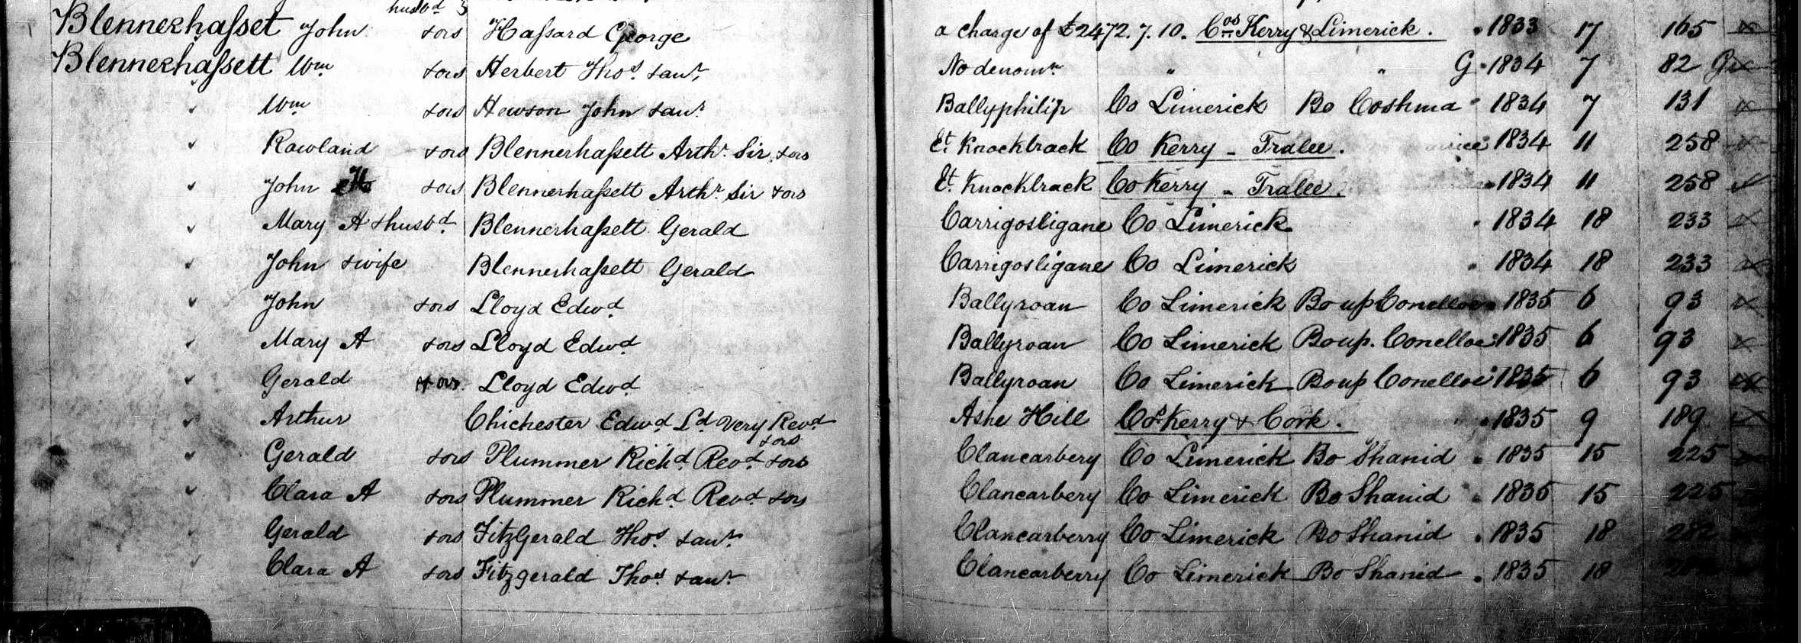 husbd &
Blennerhasset John &ors Hassard George a charge of £2472.7.10. Cos Kerry & Limerick. 1833 17 165
Blennerhassett Wm &ors Herbert Thos & anr No denomn " " G 1834 7 82
" Wm &ors Hewson John & anr Ballyphilip Co Limerick Bo Coshma 1834 7 131
" Rowland &ors Blennerhassett Arthr Sir &ors Et. Knockbrack Co Kerry - Tralee. 1834 11 258
" John &ors Blennerhassett Arthr Sir &ors Et. Knockbrack Co Kerry - Tralee. 1834 11 258
" Mary A & husbd Blennerhassett Gerald Carrigosligane Co Limerick 1834 18 233
" John & wife Blennerhassett Gerald Carrigosligane Co Limerick 1834 18 233
" John &ors Lloyd Edwd Ballyroan Co Limerick Bo up Conelloe 1835 6 93
" Mary A &ors Lloyd Edwd Ballyroan Co Limerick Bo up. Conelloe 1835 6 93
" Gerald &ors Lloyd Edwd Ballyroan Co Limerick Bo up Conelloe 1835 6 93
" Arthur Chichester Edwd Ld very Revd &ors Ashe Hill Cos Kerry & Cork. 1835 9 189
" Gerald &ors Plummer Richd Revd &ors Clancarbery Co Limerick Bo Shanid 1835 15 225
" Clara A &ors Plummer Richd Revd &ors Clancarbery Co Limerick Bo Shanid 1835 15 225
Gerald &ors FitzGerald Thos & anr Clancarberry Co Limerick Bo Shanid 1835 18 282
Clara A &ors Fitzgerald Thos & anr Clancarberry Co Limerick Bo Shanid 1835 18